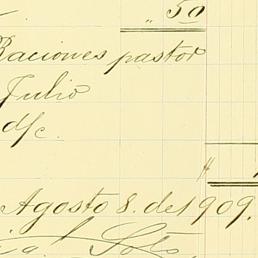 " 50
Raciones pastor
Julio
d/c.
Agosto 8. de 1909.
Soto